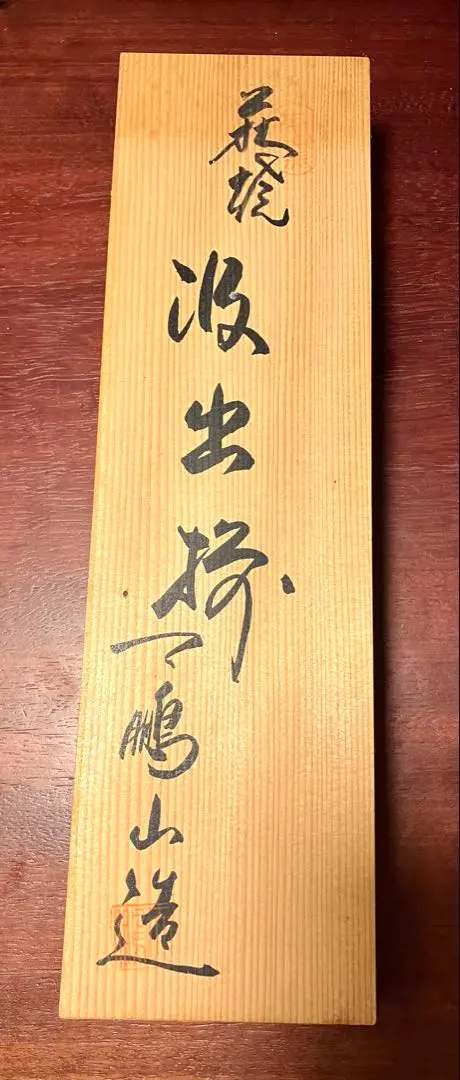 萩焼
汲出揃
鵬山造